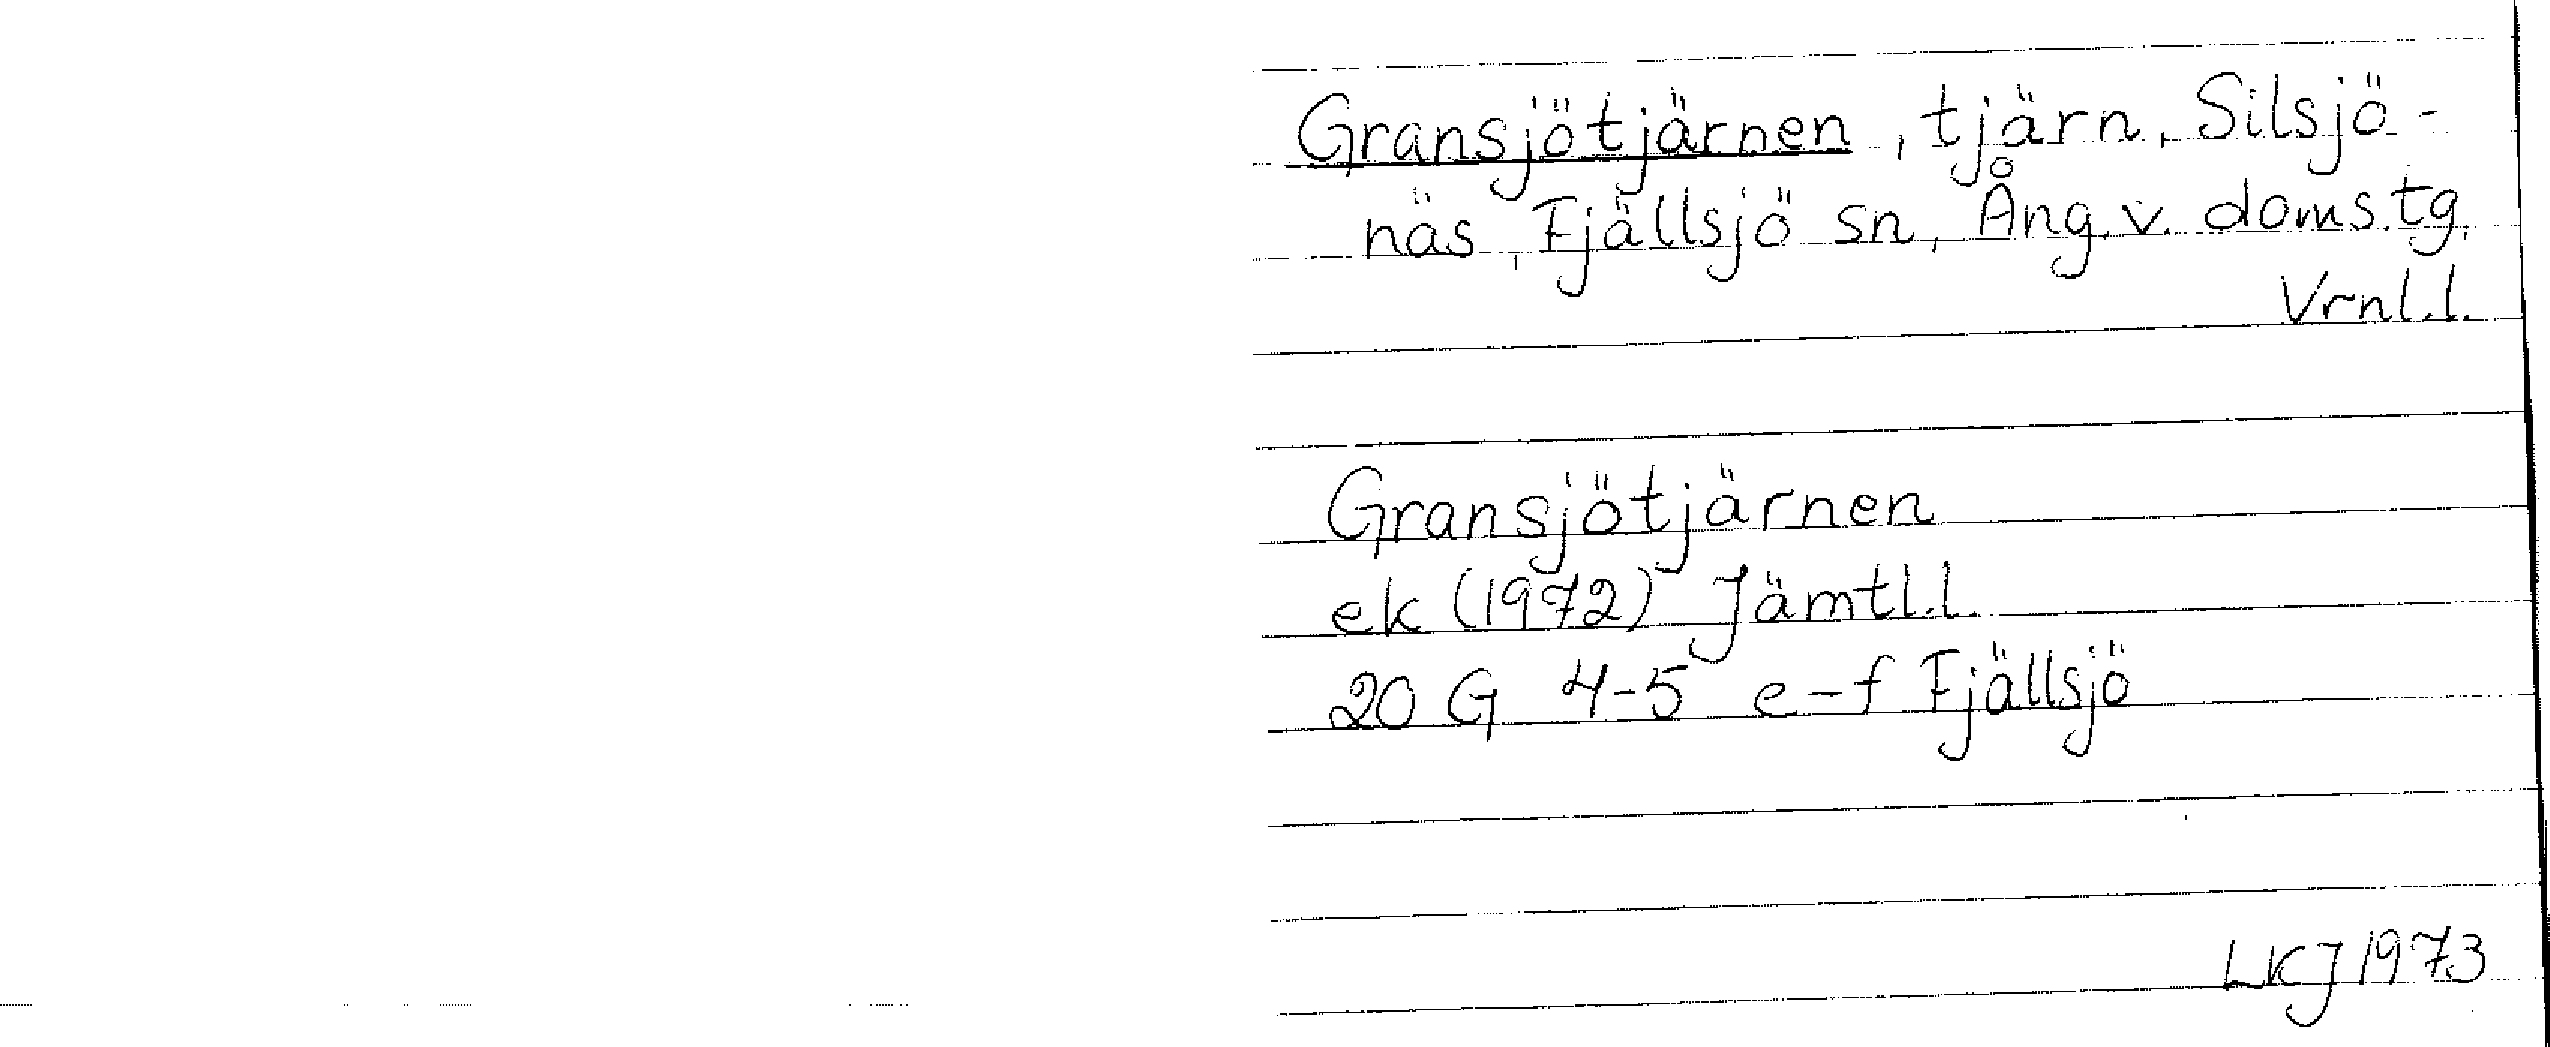 Gransjötjärnen, tjärn, Silsjö-
näs, Fjällsjö sn, Ång. v. doms.tg.
Vrnl.l.
Gransjötjärnen
ek (1972) Jämtl.l.
20 G 4-5 e-f Fjällsjö
LKJ 1973